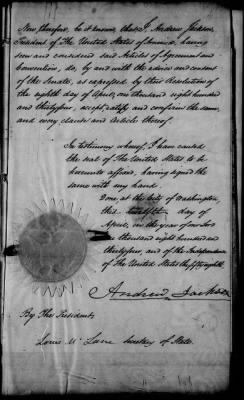 Now, therefore, be it known, that I, Andrew Jackson,
President of The United States of America, having
seen and considered said Articles of Agreement and
Convention, do, by and with the advice and consent
of the Senate, as expressed by their Resolution of
the eighth day of April, one thousand eight hundred
and thirtyfour, accept, ratify and confirm the same,
and every clause and Article thereof.
In testimony whereof, I have caused
the seal of The United States to be
hereunto affixed, having signed the
same with my hand.
Done at the City of Washington,
this twelfth day of
April, in the year of our Lord
one thousand eight hundred and
thirtyfour, and of the Independence
of The United States the fiftyeighth.
Andrew Jackson
By The President:
Louis McLane Secretary of State.